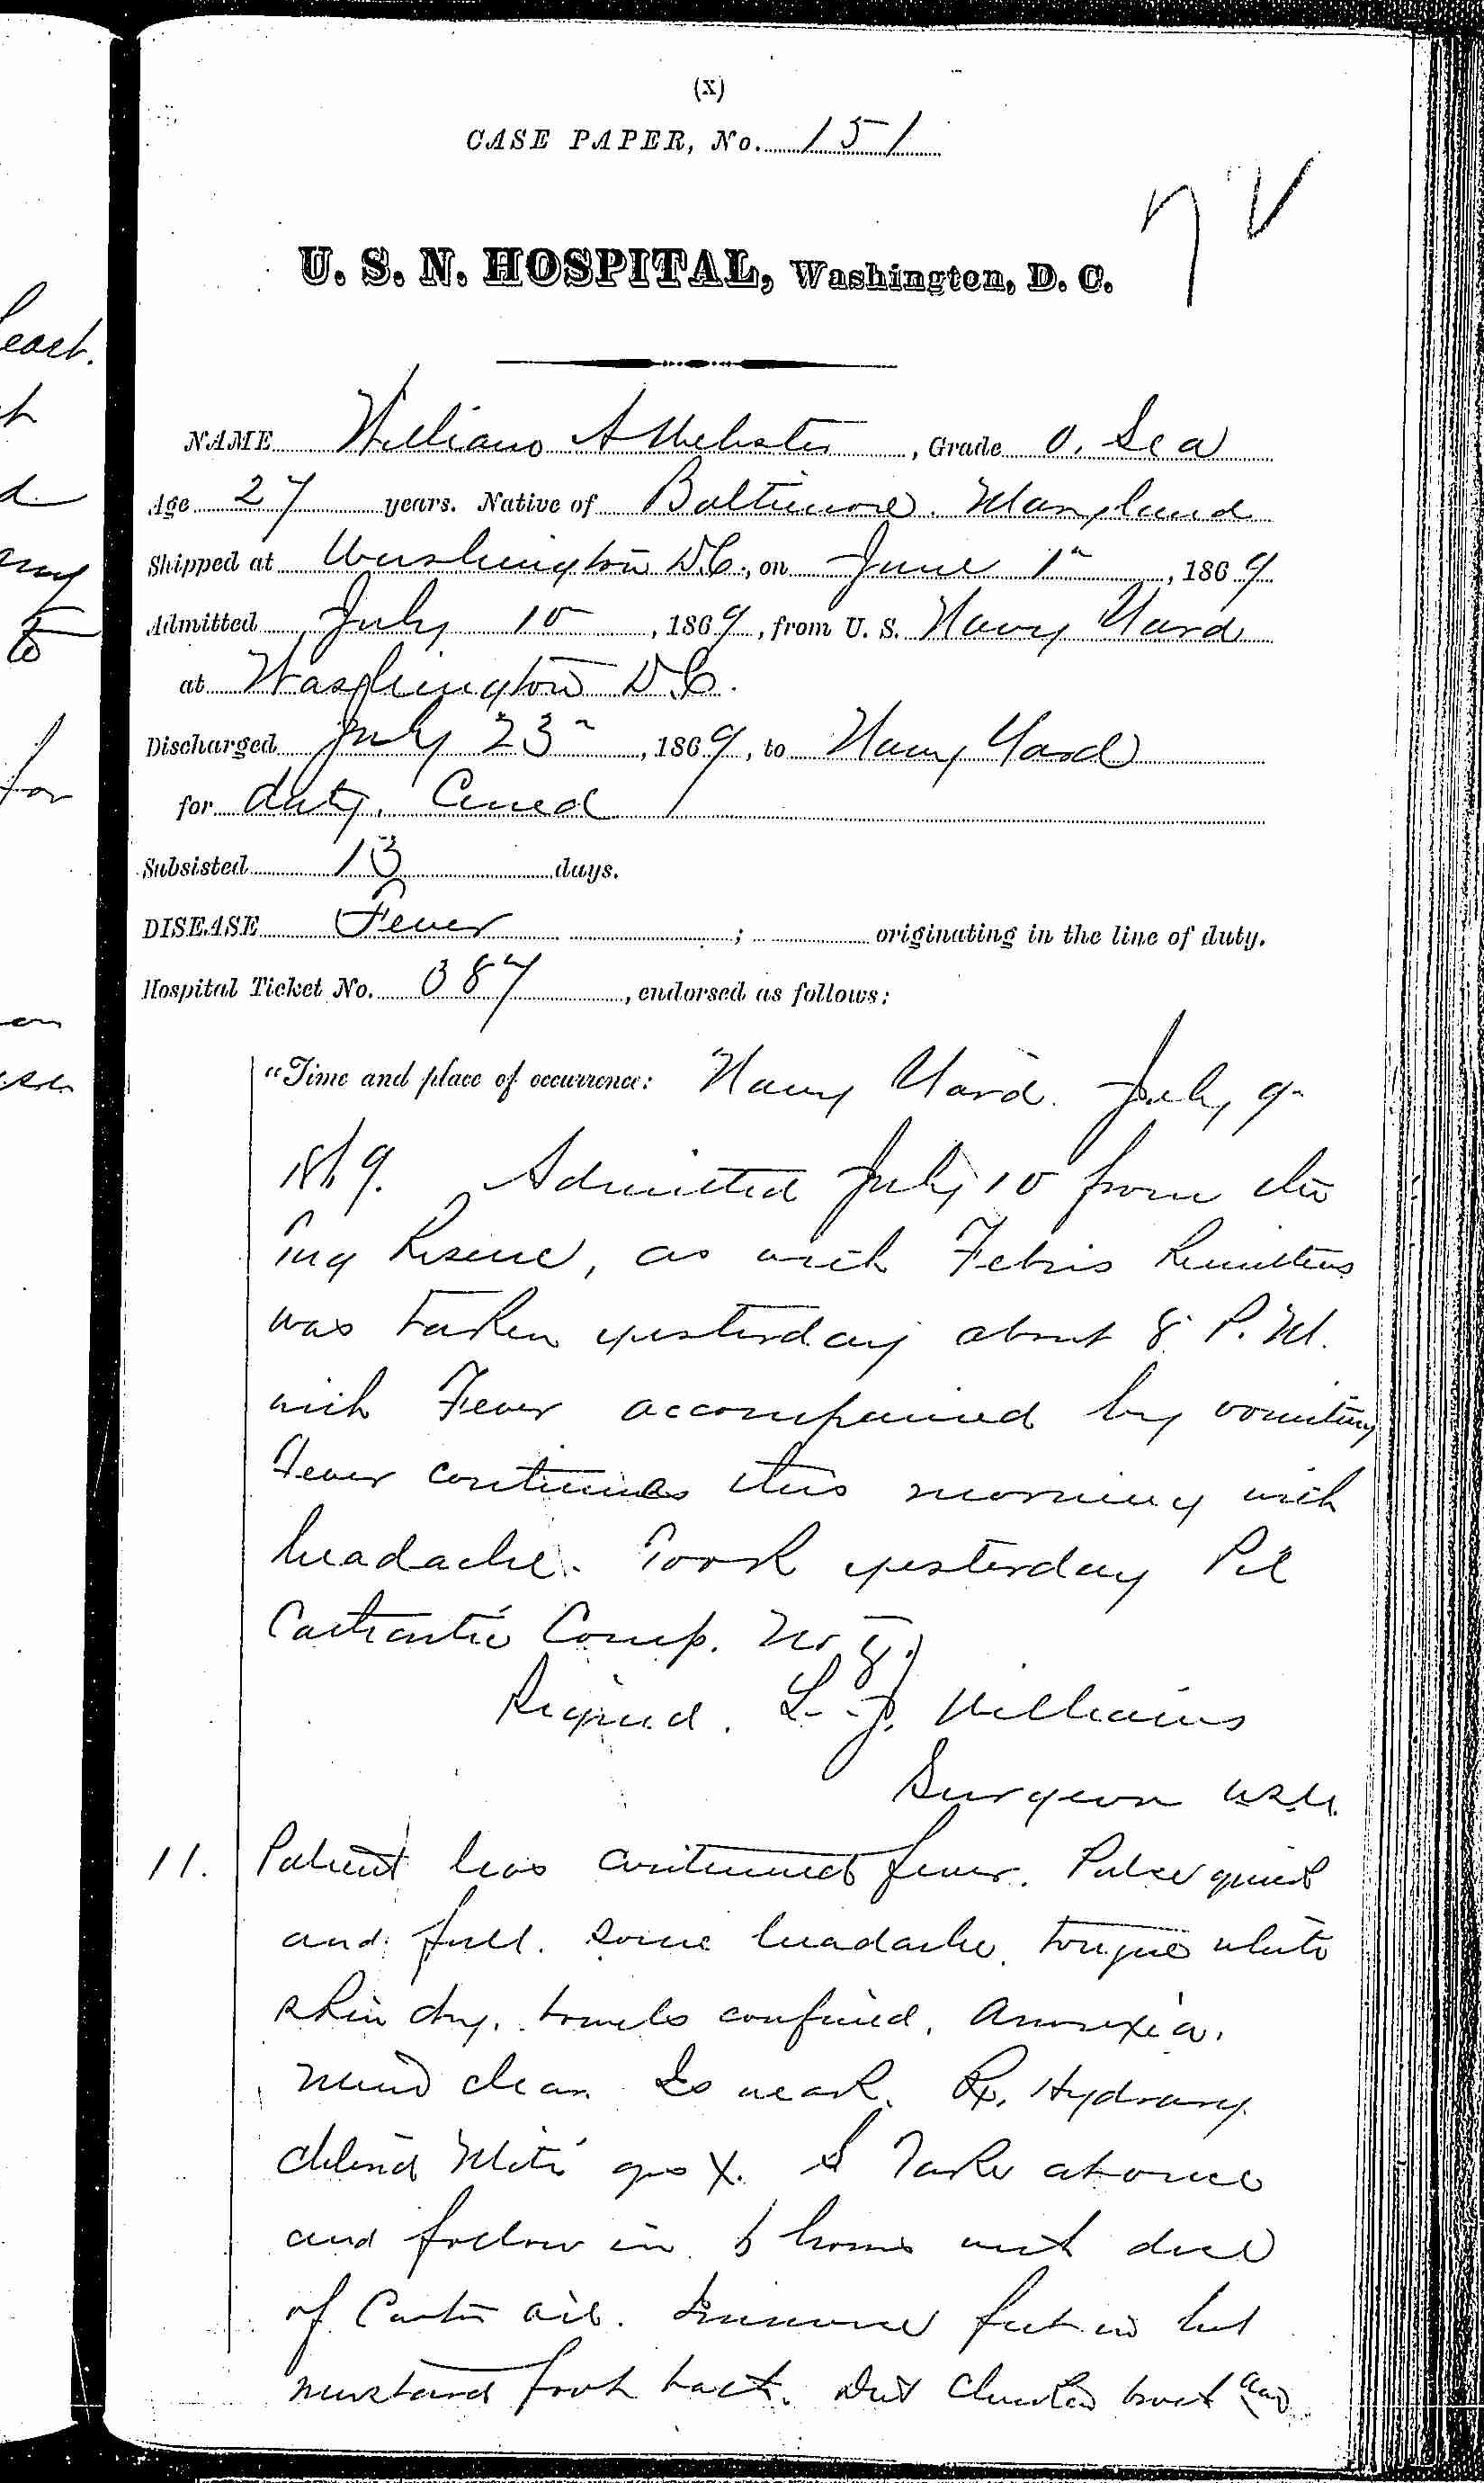 (X)
CASE PAPER, No. 151
U. S. N. HOSPITAL, Washington, D. C.
NAME William A Webster, Grade O. Sea
Age 27 years. Native of Baltimore. Maryland
Shipped at Washington D.C., on June 1st, 1869
Admitted July 10, 1869, from U. S. Navy Yard
at Washington D.C.
Discharged July 23, 1869, to Navy Yard
for duty. Cured
Subsisted 13 days.
DISEASE Fever ; originating in the line of duty.
Hospital Ticket No. 387, endorsed as follows:
"Time and place of occurrence: Navy Yard. July 9
1869. Admitted July 10 from
with Febris Remittens
was taken yesterday about 8 P. M.
with Fever accompanied by vomiting
Fever continues this morning with
headache. Took yesterday Pil
Cathartic Comp. No
Signed. L. J. Williams
Surgeon U.S.N.
11. Patient has continued fever. Pulse quick
and full. Some headache. tongue white
skin dry. bowels confined. Anorexia.
mind clear. Is weak. Rx. Hydrarg
chlorid Mite grs X. S Take at once
and follow in 6 hours with dose
of Castor oil. Immerse feet in hot
mustard foot bath. Diet Chicken broth and